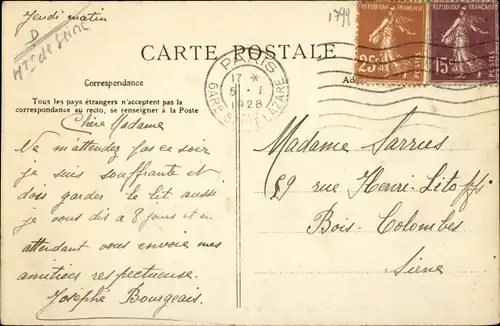 Jeudi matin
D
Hts de Seine
1799
CARTE POSTALE
RÉPUBLIQUE FRANÇAISE
25c
POSTES
RÉPUBLIQUE FRANÇAISE
15c
POSTES
PARIS
17 *
5 · 1
1928
GARE SAINT LAZARE
Correspondance
Ad
Tous les pays étrangers n'acceptent pas la
correspondance au recto, se renseigner à la Poste
Chère Madame
Ne m'attendez pas ce soir
je suis souffrante et
dois garder le lit aussi
je vous dis a 8 jours et en
attendant vous envoie mes
amitiées respectueuse.
Josephe Bourgeais.
Madame Sarrus
59 rue Henri-Litolff
Bois-Colombes
Siene